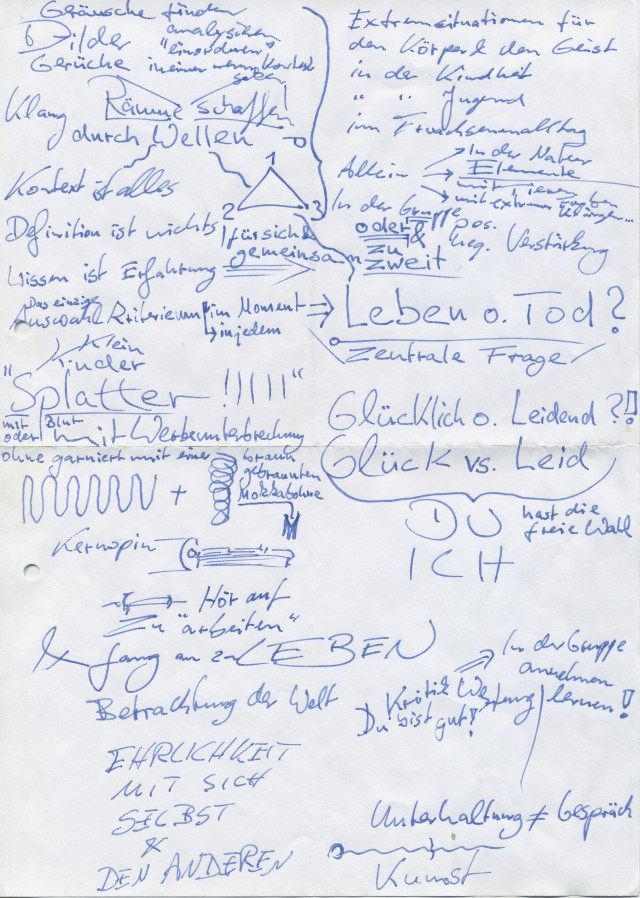 Geräusche finden
Bilder analysieren
"einordnen"
Gerüche in einen neuen Kontext
setzen
Klang Räume schaffen!
durch Wellen
1
2 3
Kontext ist alles
Definition ist nichts
für sich &
gemeinsam
Wissen ist Erfahrung
Das einzige
Auswahl Kriterium im Moment
in jedem
Klein
Kinder
"Splatter !!!!!"
mit
oder Blut mit Werbeunterbrechung
ohne garniert mit einer
braun
gebrannten
Mokkabohne
+
Kernspin
Hör auf
zu "arbeiten"
& fang an zu LEBEN
Betrachtung der Welt
EHRLICHKEIT
MIT SICH
SELBST
&
DEN ANDEREN
Extremsituationen für
den Körper & den Geist
in der Kindheit
" " Jugend
im Erwachsenenalltag
Allein
In der Natur
Elemente
mit extremen Farben
Klängen...
In der Gruppe
oder
zu
zweit
pos.
neg. Verstärkung
Leben o. Tod?
Zentrale Frage
Glücklich o. Leidend ?!
Glück vs. Leid
DU
ICH
hast die
freie Wahl
In der Gruppe
annehmen
lernen!
Kritik Wertung
Du bist gut!
Unterhaltung ≠ Gespräch
Kunst